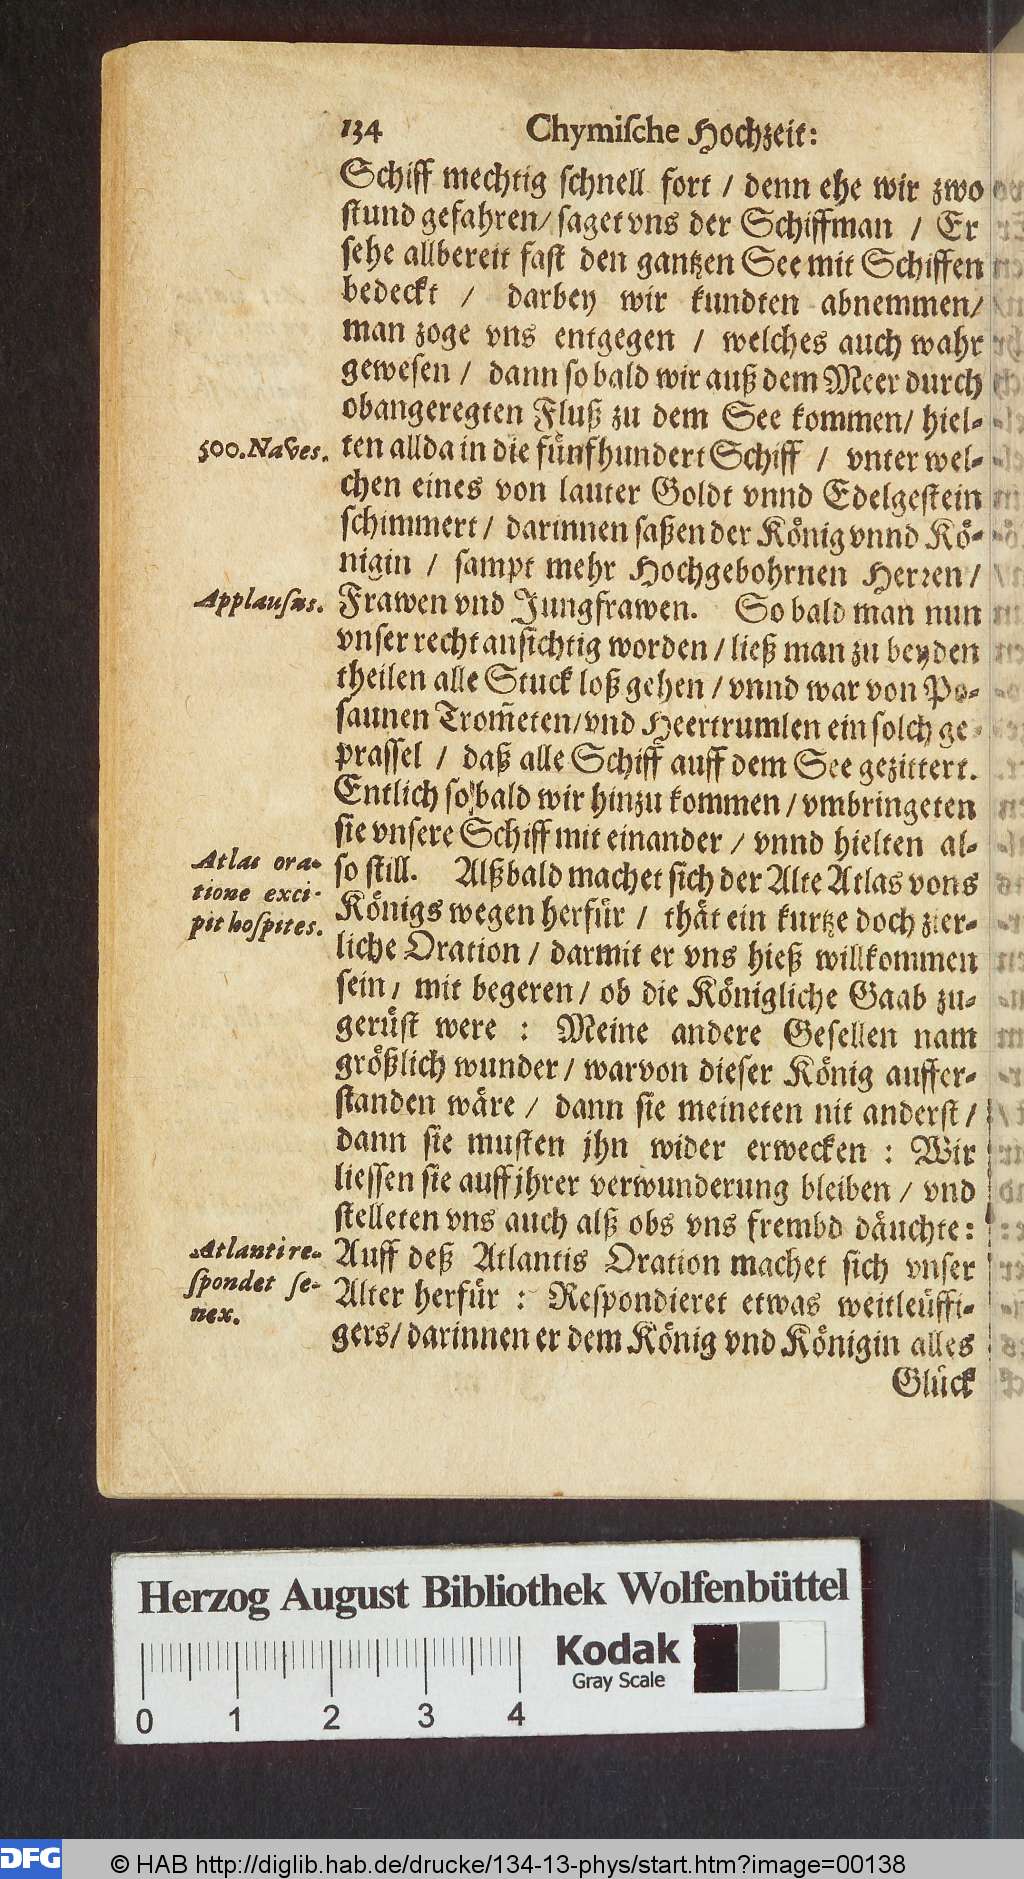 134 Chymiſche Hochzeit:
Schiff mechtig ſchnell fort / denn ehe wir zwo
ſtund gefahren/ ſaget vns der Schiffman / Er
ſehe allbereit faſt den gantzen See mit Schiffen
bedeckt / darbey wir kundten abnemmen/
man zoge vns entgegen / welches auch wahr
geweſen / dann ſo bald wir auß dem Meer durch
obangeregten Fluß zu dem See kommen/ hiel-
500. Naves.
ten allda in die fünfhundert Schiff / vnter wel-
chen eines von lauter Goldt vnnd Edelgeſtein
ſchimmert / darinnen ſaßen der König vnnd Kö-
nigin / ſampt mehr Hochgebohrnen Herren /
Applauſus.
Frawen vnd Jungfrawen. So bald man nun
vnſer recht anſichtig worden / ließ man zu beyden
theilen alle Stuck loß gehen / vnnd war von Po-
ſaunen Trom̃eten/ vnd Heertrumlen ein ſolch ge-
praſſel / daß alle Schiff auff dem See gezittert.
Entlich ſo bald wir hinzu kommen / vmbringeten
ſie vnſere Schiff mit einander / vnnd hielten al-
Atlas ora-
tione exci-
pit hoſpites.
ſo ſtill. Alßbald machet ſich der Alte Atlas vons
Königs wegen herfür / thät ein kurtze doch zier-
liche Oration / darmit er vns hieß willkommen
ſein / mit begeren / ob die Königliche Gaab zu-
gerüſt were : Meine andere Geſellen nam
größlich wunder / warvon dieſer König auffer-
ſtanden wäre / dann ſie meineten nit anderſt /
dann ſie muſten jhn wider erwecken : Wir
lieſſen ſie auff jhrer verwunderung bleiben / vnd
ſtelleten vns auch alß obs vns frembd däuchte:
Atlanti re-
ſpondet ſe-
nex.
Auff deß Atlantis Oration machet ſich vnſer
Alter herfür : Reſpondieret etwas weitleüffi-
gers/ darinnen er dem König vnd Königin alles
Glück
Herzog August Bibliothek Wolfenbüttel
Kodak
Gray Scale
0 1 2 3 4
DFG
© HAB http://diglib.hab.de/drucke/134-13-phys/start.htm?image=00138